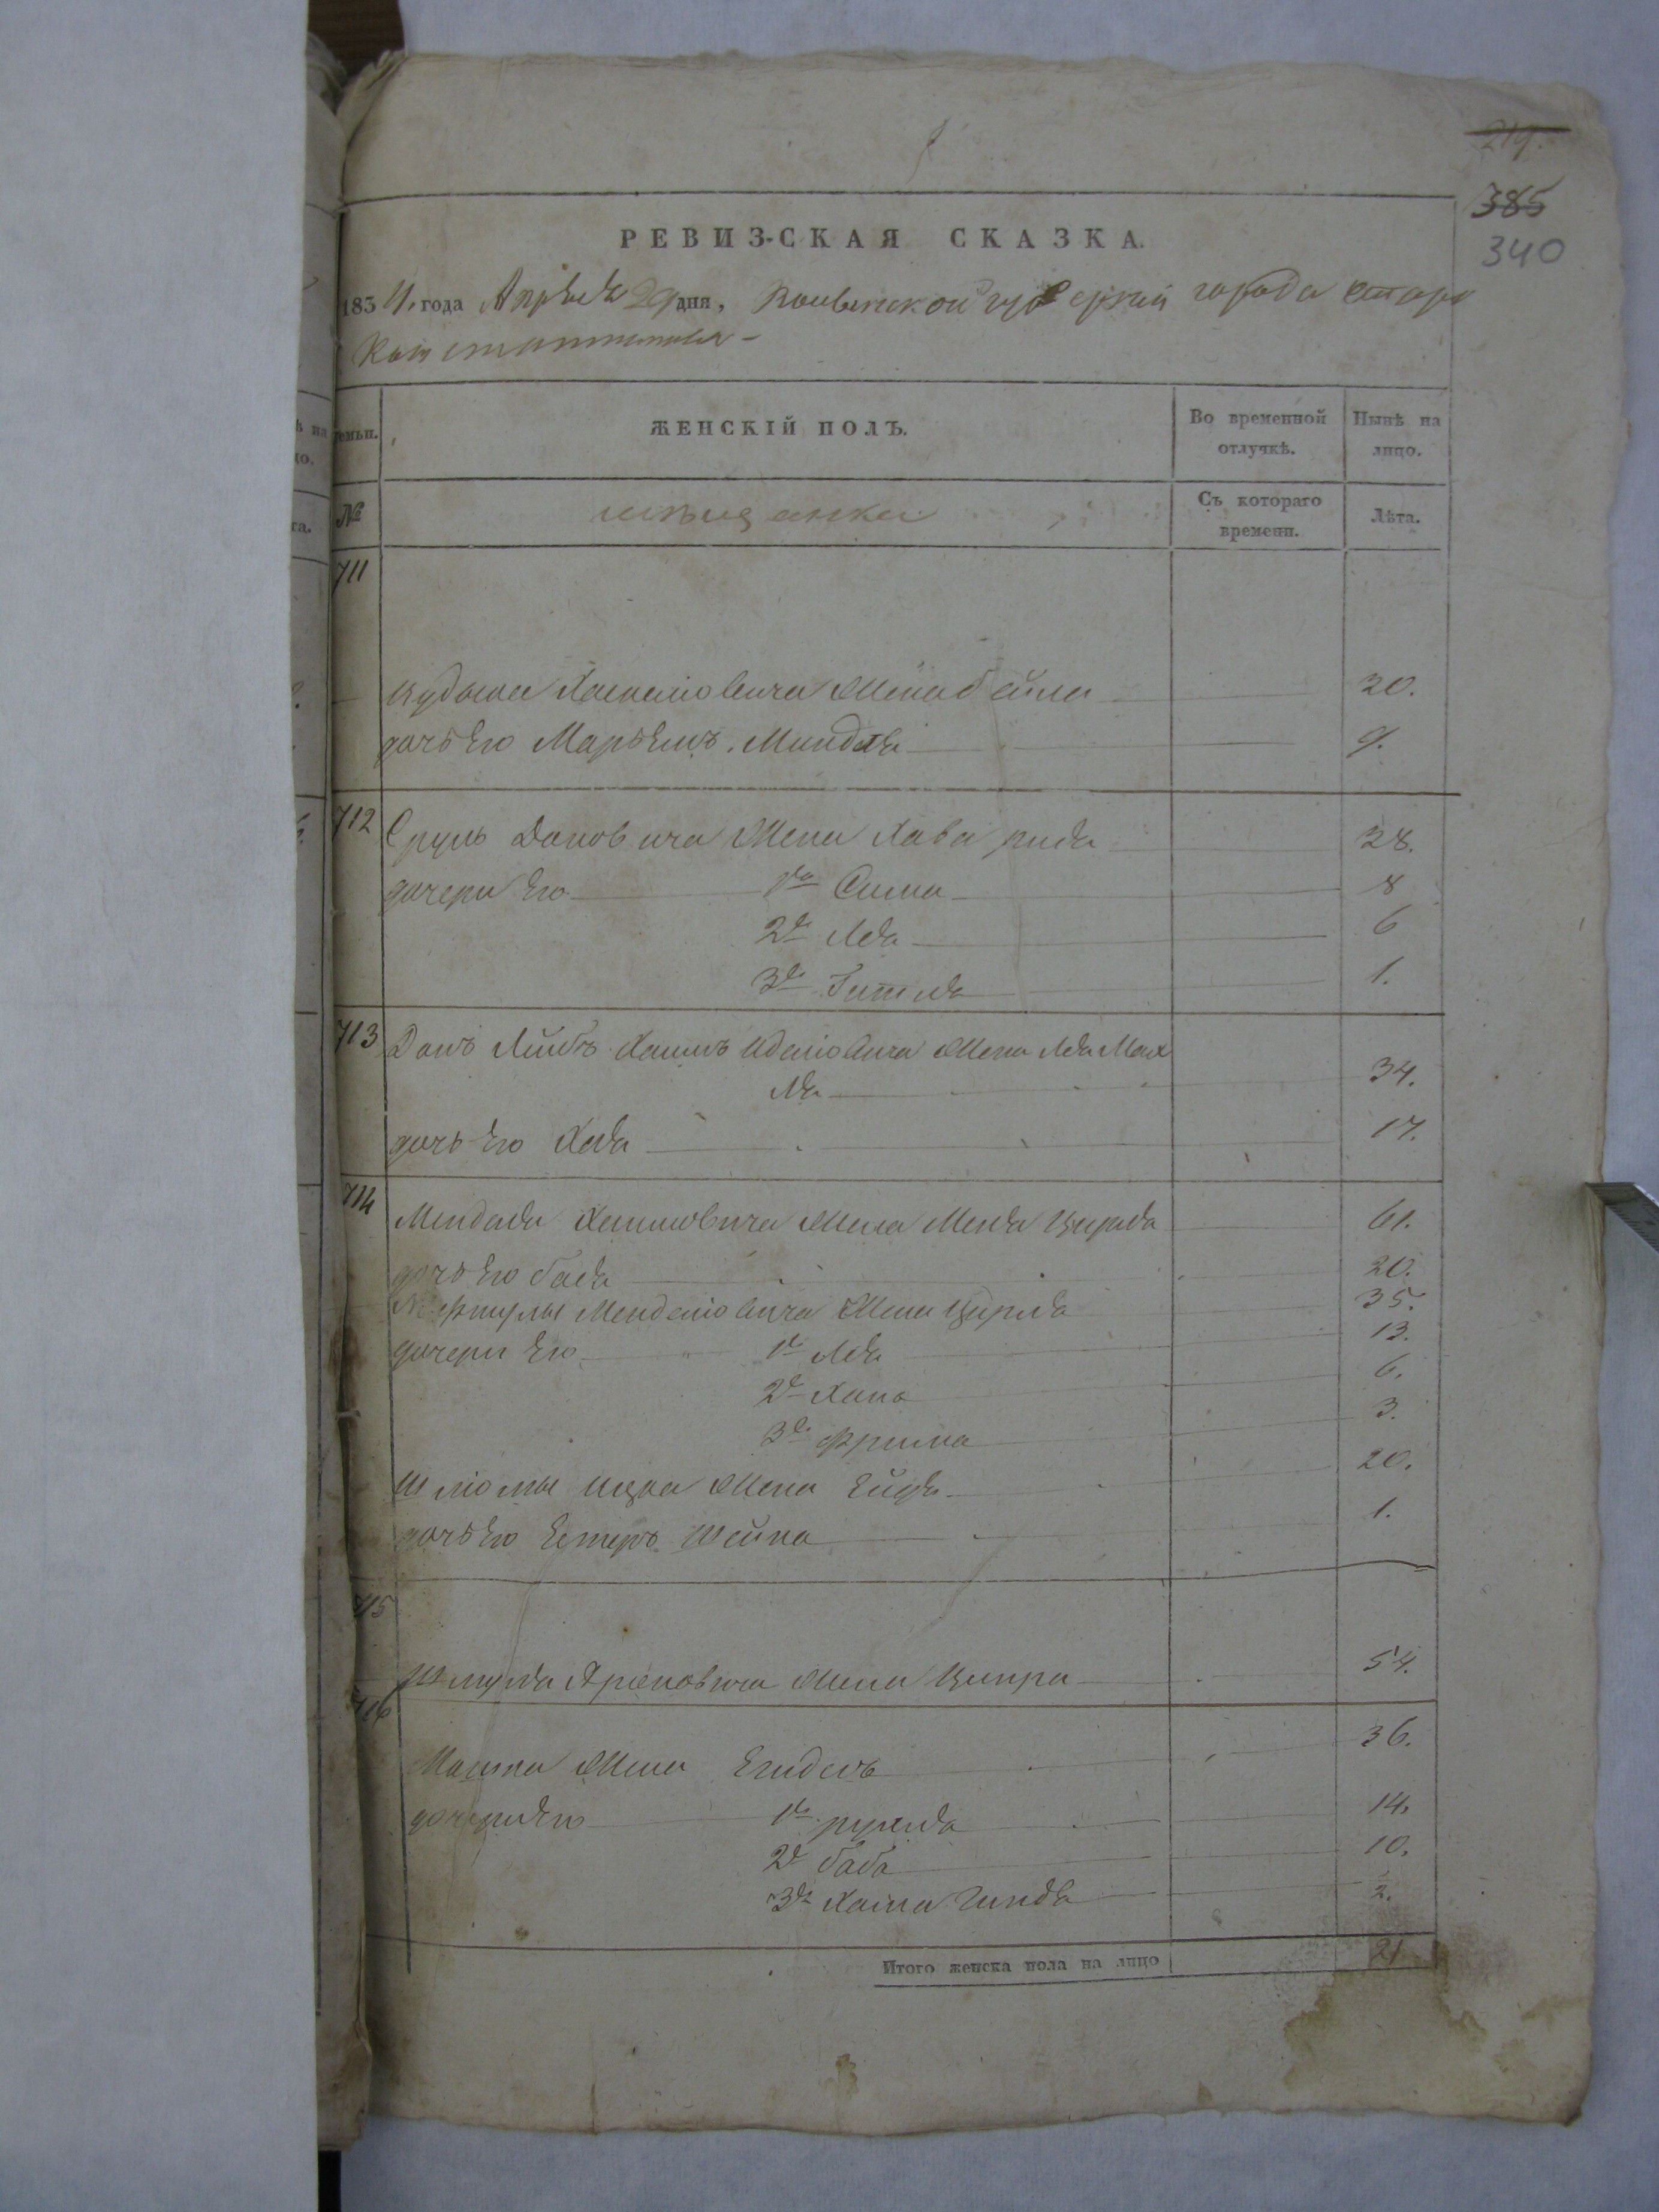 219.
385
340
РЕВИЗ-СКАЯ СКАЗКА.
1834. года Апреля 29 дня, Волынской губерніи города Старо
Константинова
семьи.
ЖЕНСКІЙ ПОЛЪ.
Во временной отлучкѣ.
Нынѣ на лицо.
№
мѣщанки
Съ котораго времени.
Лѣта.
711
Мена бейла 20.
дочь Его Марьемъ Миндля 9.
712
Сруль Дановича Жена Хава рида 28.
дочери Его 1я Сима 8
2я Лея 6
3я Гитля 1.
713
Данъ Лейбъ Хаимъ Жена Лея Мах
ля 34.
дочь Его Хая 17.
714
Менделя Хаимовича Жена Меня Цирля 61.
дочь Его бася 20.
Менделiовича Жена Цирля 35.
дочери Его 1я Лея 13.
2я Хана 6.
3я Фрима 3.
Шліомы Ицка Жена Ейдя 20.
дочь Его Естеръ Шейна 1.
715
Шмуля Жена Ципра 54.
716
Мошка Жена 36.
дочери Его 1я рухля 14.
2я баба 10.
3я Хаша Гиндя 2.
Итого женска пола на лицо 21